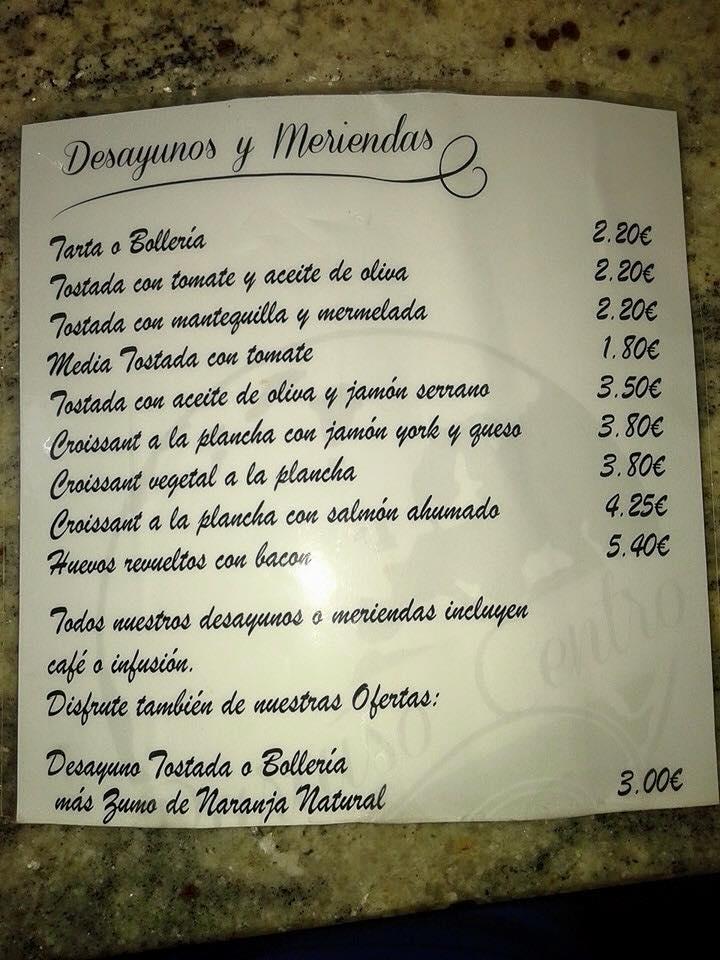 Desayunos y Meriendas
Tarta o Bollería 2.20€
Tostada con tomate y aceite de oliva 2.20€
Tostada con mantequilla y mermelada 2.20€
Media Tostada con tomate 1.80€
Tostada con aceite de oliva y jamón serrano 3.50€
Croissant a la plancha con jamón york y queso 3.80€
Croissant vegetal a la plancha 3.80€
Croissant a la plancha con salmón ahumado 4.25€
Huevos revueltos con bacon 5.40€
Todos nuestros desayunos o meriendas incluyen
café o infusión.
Disfrute también de nuestras Ofertas:
Desayuno Tostada o Bollería
más Zumo de Naranja Natural 3.00€